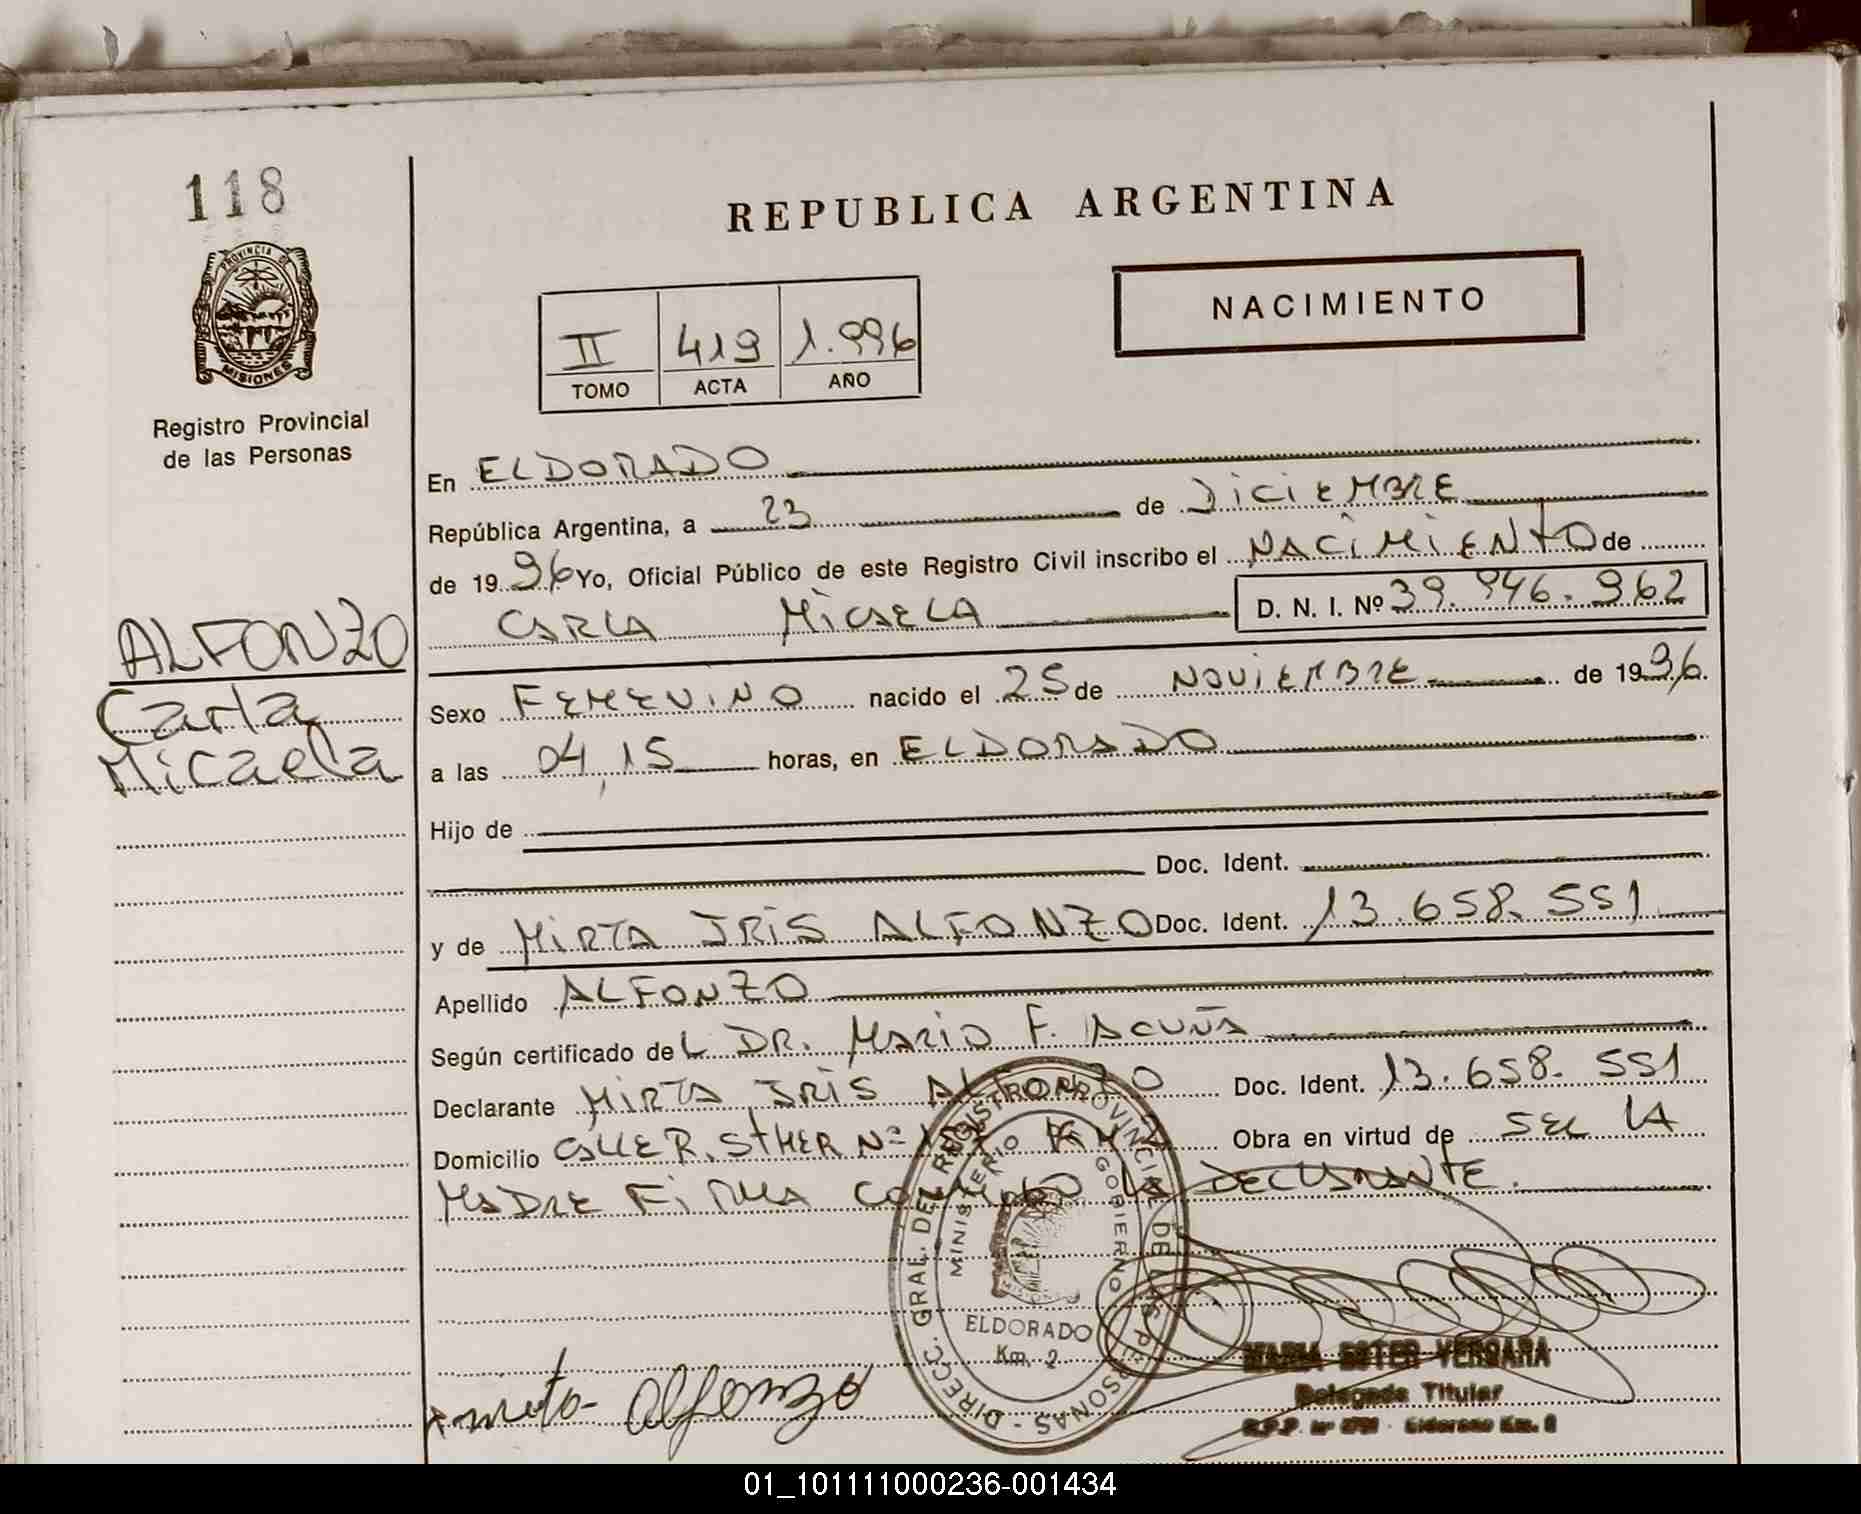 118
PROVINCIA DE
MISIONES
Registro Provincial
de las Personas
REPUBLICA ARGENTINA
NACIMIENTO
II 419 1.996
TOMO ACTA AÑO
En ELDORADO
República Argentina, a 23 de DICIEMBRE
de 1996 Yo, Oficial Público de este Registro Civil inscribo el NACIMIENTO de
CARLA MICAELA D. N. I. Nº 39.946.962
ALFONZO
Carla
Micaela
Sexo FEMENINO nacido el 25 de NOVIEMBRE de 1996.
a las 04,15 horas, en ELDORADO
Hijo de
Doc. Ident.
y de MIRTA IRIS ALFONZO Doc. Ident. 13.658.551
Apellido ALFONZO
Según certificado del DR. MARIO F. ACUÑA
Declarante MIRTA IRIS ALFONZO Doc. Ident. 13.658.551
Domicilio CALLE R. STHER Nº Obra en virtud de SER LA
MADRE FIRMA CONMIGO LA DECLARANTE.
DIRECC. GRAL. DEL REGISTRO PROVINCIAL DE LAS PERSONAS
MINISTERIO GOBIERNO
MISIONES
ELDORADO
Km. 2
mirta Alfonzo
MARIA ESTER VERGARA
Delegada Titular
Eldorado Km. 2
01_101111000236-001434